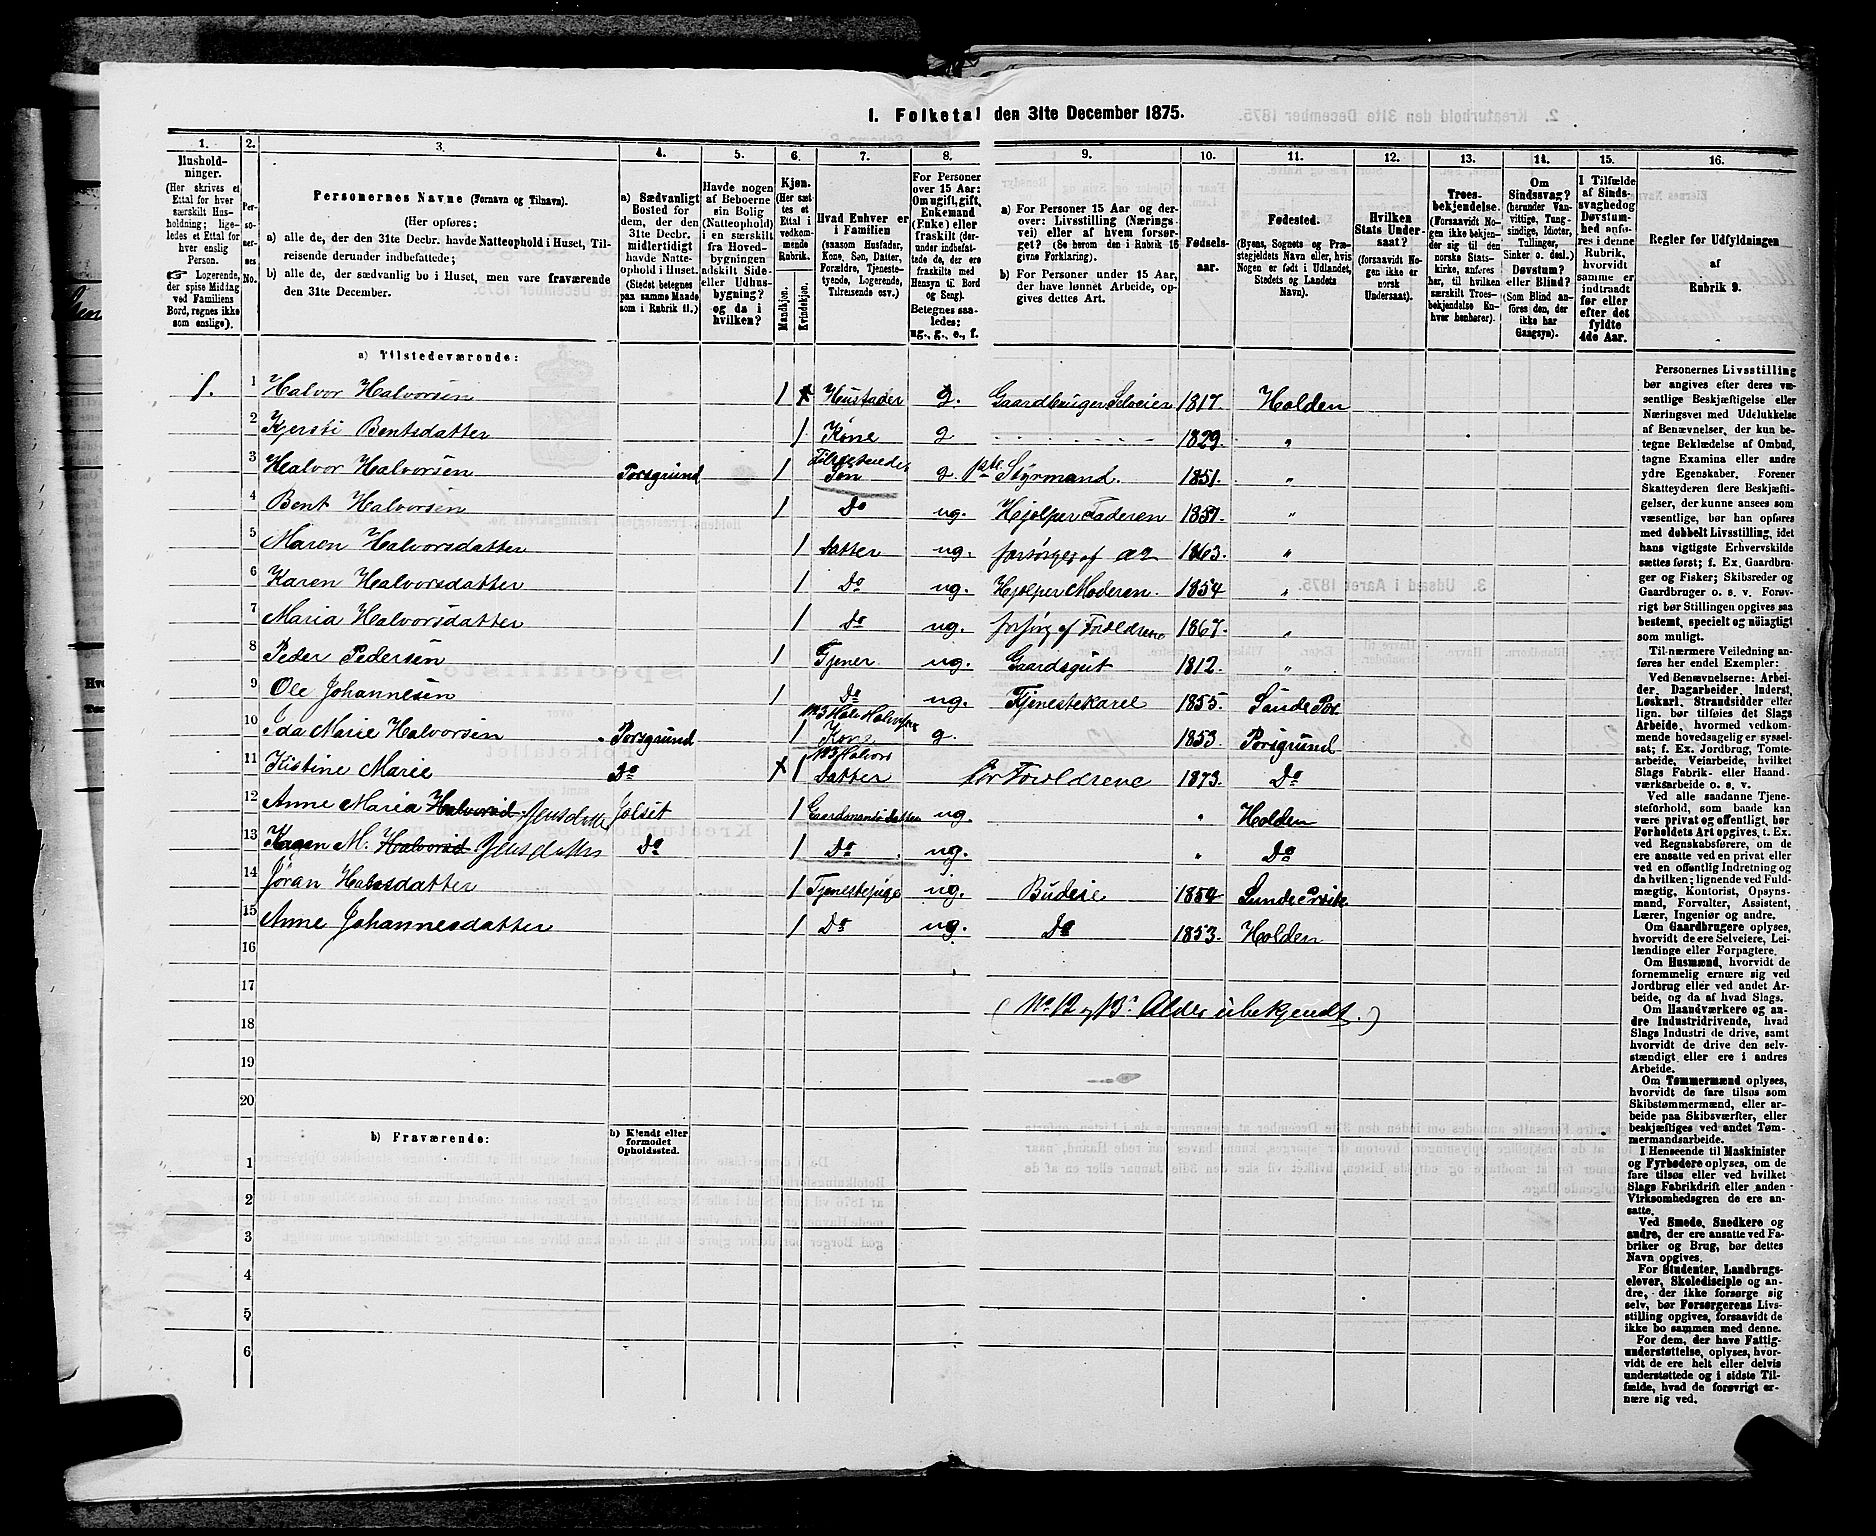 I. Folketal den 31te December 1875.
1. 2. 3. 4. 5. 6. 7. 8. 9. 10. 11. 12. 13. 14. 15. 16.
Hushold-
ninger.
(Her skrives et
Ettal for hver
særskilt Hus-
holdning; lige-
ledes et Ettal for
hver enslig
Person.
☞ Logerende,
der spise Middag
ved Familiens
Bord, regnes ikke
som enslige).
Per-
so-
ner-
nes
No.
Personernes Navne (Fornavn og Tilnavn).
(Her opføres:
a) alle de, der den 31te Decbr. havde Natteophold i Huset, Til-
reisende derunder indbefattede;
b) alle de, der sædvanlig bo i Huset, men vare fraværende
den 31te December.
a) Sædvanligt
Bosted for
dem, der den
31te Decbr.
midlertidigt
havde Natte-
ophold i Huset.
(Stedet betegnes
paa samme Maade
som i Rubrik 11.)
Havde nogen
af Beboerne
sin Bolig
(Natteophold)
i en særskilt
fra Hoved-
bygningen
adskilt Side-
eller Udhus-
bygning?
og da i
hvilken?
Kjøn.
(Her sæt-
tes et
Ettal i
vedkom-
mende
Rubrik.
Mandkjøn.
Kvindekjøn.
Hvad Enhver er
i Familien
(saasom Husfader,
Kone, Søn, Datter,
Forældre, Tjeneste-
tyende, Logerende,
Tilreisende osv.)
For Personer
over 15 Aar:
Om ugift, gift,
Enkemand
(Enke) eller
fraskilt (der-
under indbefat-
tede de, der ere
fraskilte med
Hensyn til Bord
og Seng).
Betegnes saa-
ledes:
ug., g., e., f.
a) For Personer 15 Aar og der-
over: Livsstilling (Nærings-
vei) eller af hvem forsør-
get? (Se herom den i Rubrik 16
givne Forklaring).
b) For Personer under 15 Aar,
der have lønnet Arbeide, op-
gives dettes Art.
Fødsels-
aar.
Fødested.
(Byens, Sognets og Præ-
stegjeldets Navn eller, hvis
Nogen er født i Udlandet,
Stedets og Landets
Navn).
Hvilken
Stats Under-
saat?
(forsaavidt No-
gen ikke er
norsk
Undersaat).
Troes-
bekjendelse.
(Forsaavidt No-
gen ikke bekjen-
der sig til den
norske Stats-
kirke, anføres
her, til hvilken
særskilt Troes-
bekjendelse En-
hver henhører).
Om
Sindssvag?
(herunder Van-
vittige, Tung-
sindige, Idioter,
Tullinger,
Sinker o. desl.)
Døvstum?
eller Blind?
(Som Blind an-
føres den, der
ikke har
Gangsyn).
I Tilfælde
af Sinds-
svaghed og
Døvstum-
hed anfø-
res i denne
Rubrik,
hvorvidt
samme er
indtraadt
før eller
efter det
fyldte
4de Aar.
Regler for Udfyldningen
af
Rubrik 9.
a) Tilstedeværende:
1. 1 Halvor Halvorsen 1 Husfader g. Gaardbruger Selveier 1817. Holden
2 Kjersti Bentsdatter 1 Kone g 1829. "
3 Halvor Halvorsen Porsgrund 1 Tilreisende Søn g. Styrmand. 1851. "
4 Bent Halvorsen 1 Do ug. Hjelper Faderen 1857. "
5 Maren Halvorsdatter 1 Datter ug. forsørges af 1863. "
6 Karen Halvorsdatter 1 Do ug. Hjelper Moderen. 1854 "
7 Maria Halvorsdatter 1 Do ug. forsørg af Foreldrene 1867. "
8 Peder Pedersen 1 Tjener ug. Gaardsgut 1812. "
9 Ole Johannesen 1 Do ug. Tjenestekarl 1855. Sande
10 Ida Marie Halvorsen Porsgrund 1 Kone g. 1853. Porsgrund
11 Kistine Marie Do 1 Datter Foreldrene 1873. Do
12 Anne Maria Halvorsd. Jensdatter Jølset 1 Gaardmandsdatter ug. " Holden
13 Karen M. Halvorsd Jensdatter Do 1 Do ug. " Do
14 Jøran Halvsdatter 1 Tjenestepige ug. Budeie 1854
15 Anne Johannesdatter 1 Do ug. Do 1853. Holden
16
17
(No 12 og 13s Alder ubekjendt.)
18
19
20
b) Fraværende:
b) Kjendt eller
formodet
Opholdssted.
1
2
3
4
5
6
Personernes Livsstilling
bør angives efter deres væ-
sentlige Beskjæftigelse eller
Næringsvei med Udelukkelse
af Benævnelser, der kun be-
tegne Beklædelse af Ombud,
tagne Examina eller andre
ydre Egenskaber. Forener
Skatteyderen flere Beskjæfti-
gelser, der kunne ansees som
væsentlige, bør han opføres
med dobbelt Livsstilling, idet
hans vigtigste Erhvervskilde
sættes først; f. Ex. Gaardbru-
ger og Fisker; Skibsreder og
Gaardbruger o. s. v. Forøv-
rigt bør Stillingen opgives saa
bestemt, specielt og nøiagtigt
som muligt.
Til nærmere Veiledning an-
føres her endel Exempler:
Ved Benævnelserne: Arbei-
der, Dagarbeider, Inderst,
Løskarl, Strandsidder eller
lign. bør tilføies det Slags
Arbeide, hvormed vedkom-
mende hovedsagelig er syssel-
sat; f. Ex. Jordbrug, Tomte-
arbeide, Veiarbeide, hvilket
Slags Fabrik- eller Haand-
værksarbeide o. s. v.
Ved alle saadanne Tjene-
steforhold, som baade kan
være privat og offentligt, bør
Forholdets Art opgives, t. Ex.
ved Regnskabsførere, om de
ere ansatte ved en privat eller
ved en offentlig Indretning og
da hvilken; lignende ved Fuld-
mægtig, Kontorist, Opsyns-
mand, Forvalter, Assistent,
Lærer, Ingeniør og andre.
Om Gaardbrugere oplyses,
hvorvidt de ere Selveiere, Lei-
lændinge eller Forpagtere.
Om Husmænd, hvorvidt de
fornemmelig ernære sig ved
Jordbrug eller ved andet Ar-
beide, og da af hvad Slags.
Om Haandværkere og an-
dre Industridrivende, hvad
Slags Industri de drive, samt
hvorvidt de drive den selv-
stændigt eller ere i andres
Arbeide.
Om Tømmermænd oplyses,
hvorvidt de fare tilsøs som
Skibstømmermænd, eller ar-
beide paa Skibsværfter, eller
beskjæftiges ved andet Tøm-
mermandsarbeide.
I Henseende til Maskinister
og Fyrbødere oplyses, om de
fare tilsøs eller ved hvilket
Slags Fabrikdrift eller anden
Virksomhedsgren de ere an-
satte.
Ved Smede, Snedkere og
andre, der ere ansatte ved Fa-
briker og Brug, bør dettes
Navn opgives.
For Studenter, Landbrugs-
elever, Skoledisciple og an-
dre, der ikke forsørge sig
selv, bør Forsørgerens Livs-
stilling opgives, forsaavidt de
ikke bo sammen med denne.
For dem, der have Fattig-
understøttelse, oplyses, hvor-
vidt de ere helt eller delvis
understøttede og i sidste Til-
fælde, hvad de forøvrigt er-
nære sig ved.